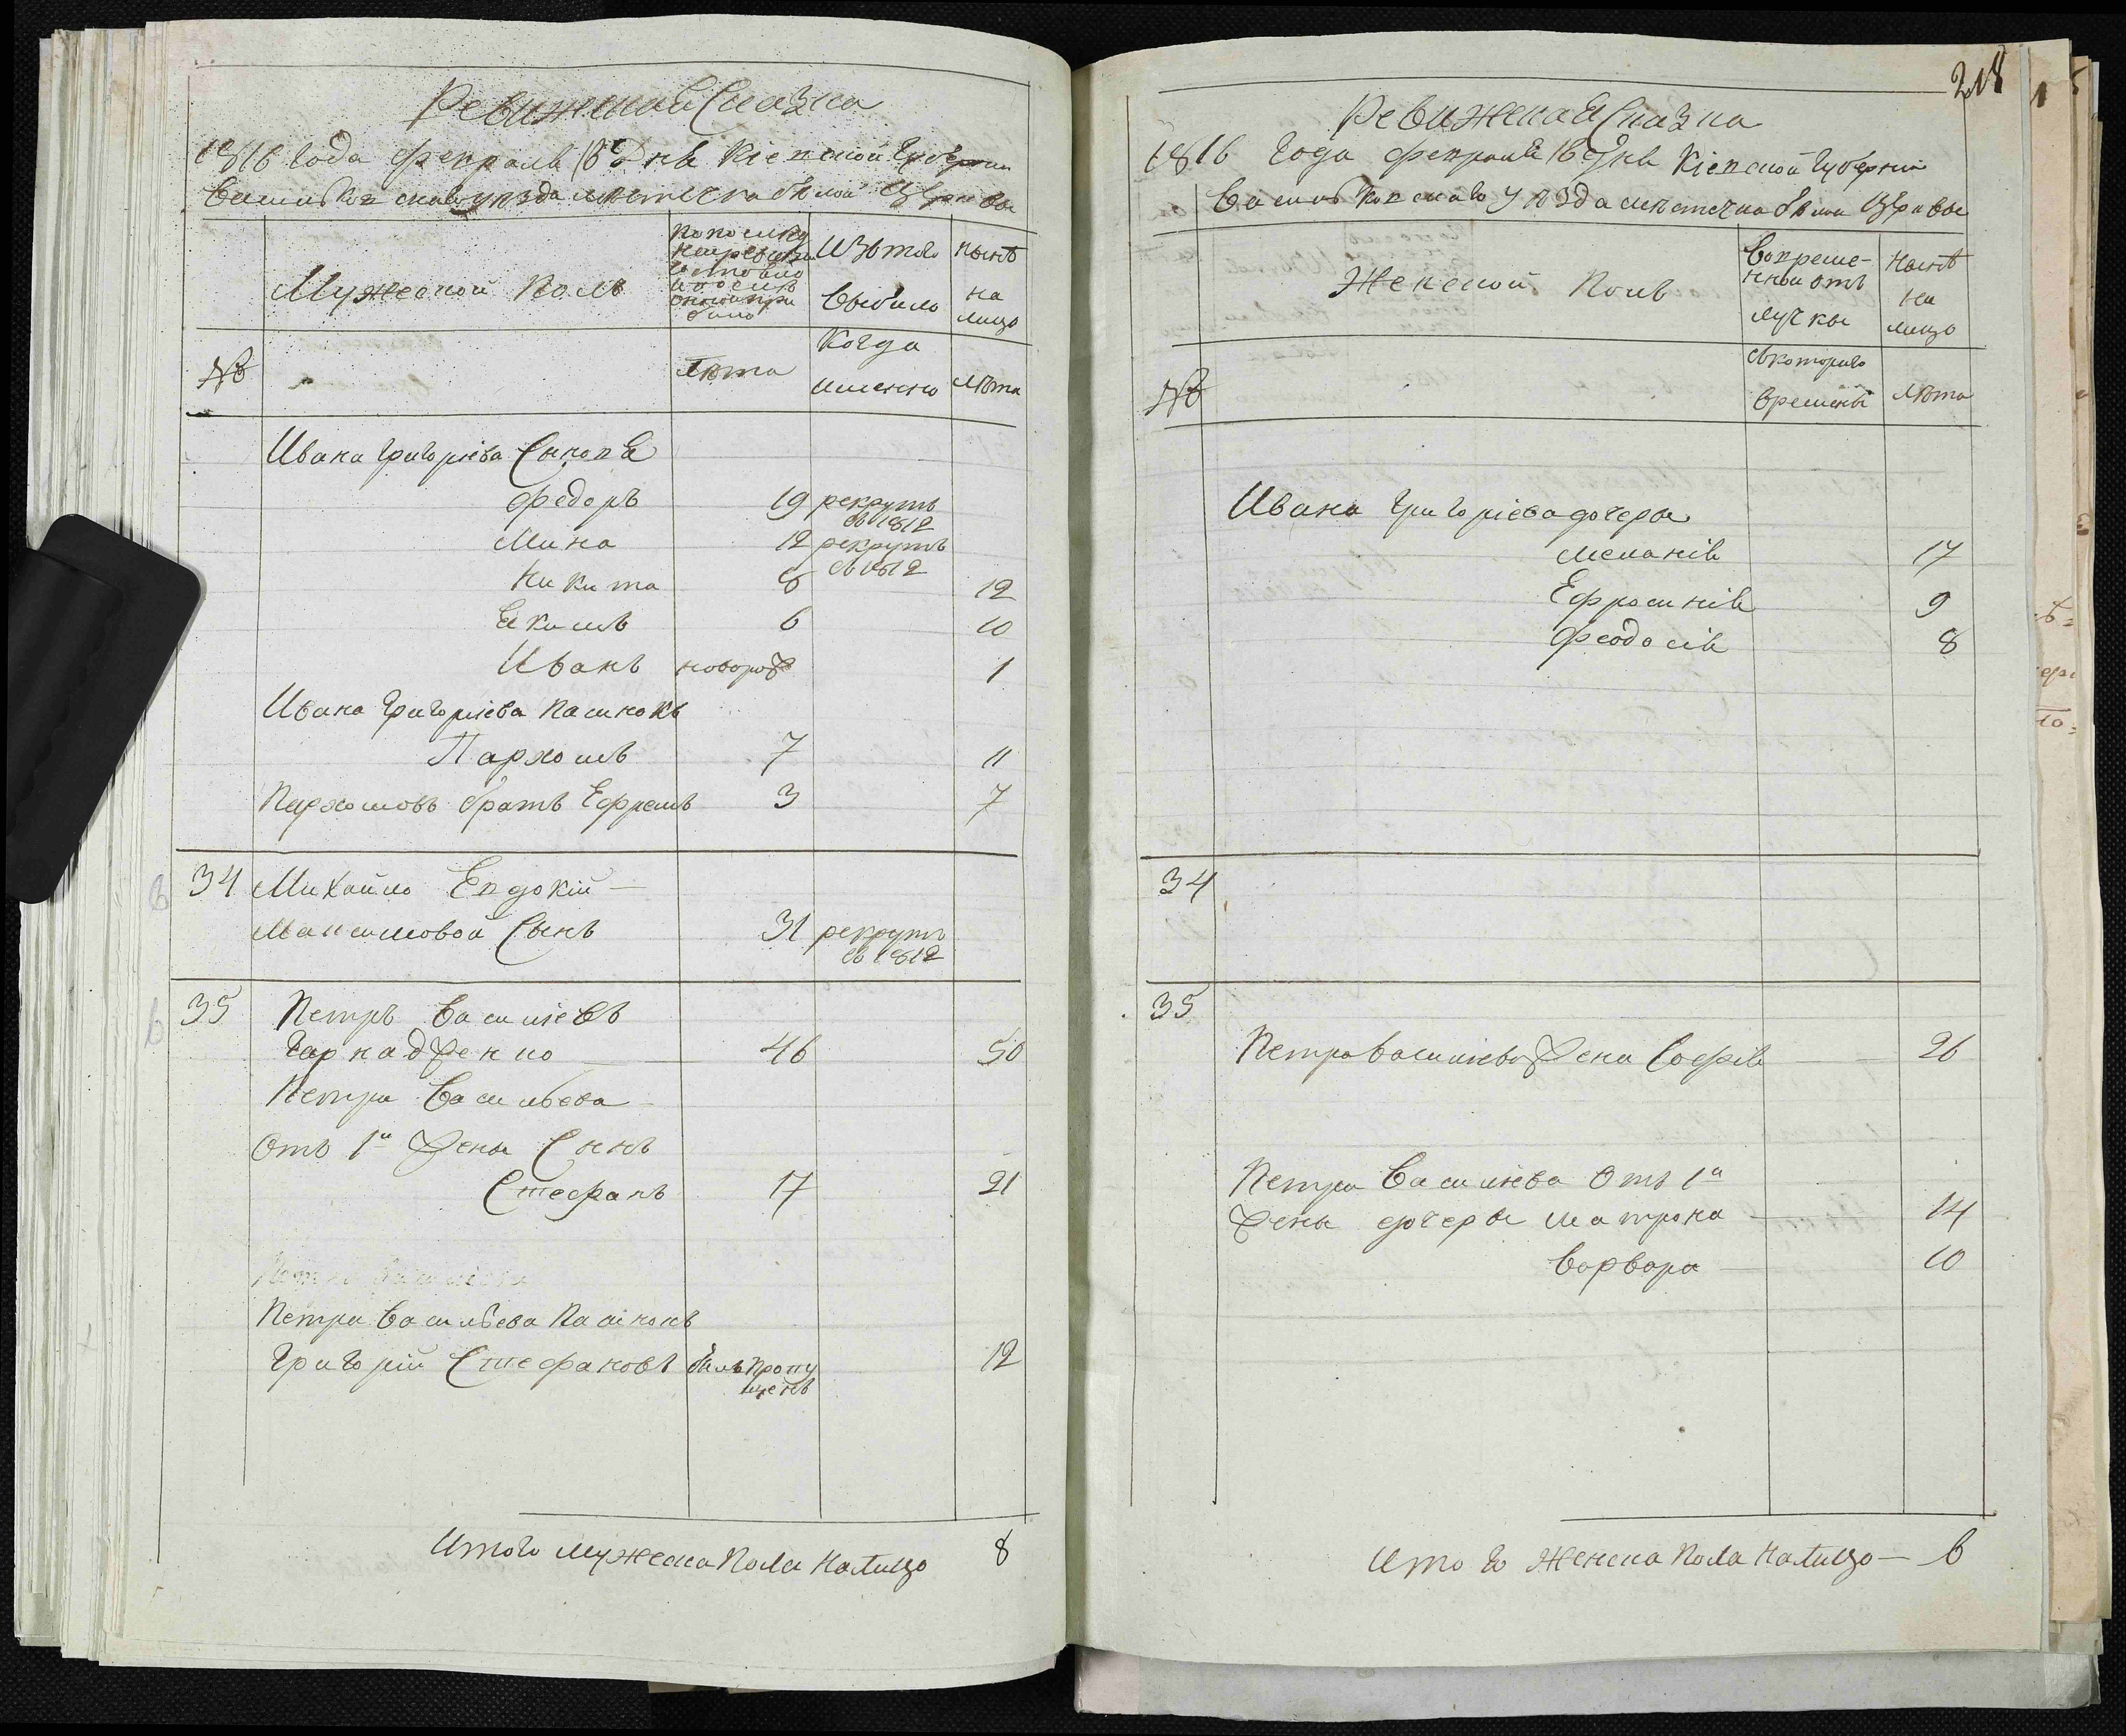 Ревижская Сказка
1816 Года февраля 16 Дня Кіевской Губерніи
Василковскаго уезда местечка белой Церквы
Мужеской Полъ
По последней ревизіи состояло и после оной прибыло
Изъ того выбило
Ныне на лицо
№
Лета
Когда именно
Лета
Ивана Григоріева Сыновя
Федоръ 19 рекрутъ въ 1812
Мина 12 рекрутъ въ 1812
Никита 8 12
Екимъ 6 10
Иванъ новорож 1
Ивана Григоріева Пасинокъ
Пархомъ 7 11
Пархомовъ братъ Ефремъ 3 7
34 Михайло Евдокіи
Максимовой Сынъ 31 рекрутъ въ 1812
35 Петръ Василіевъ
46 50
Петра Васильева
Отъ 1й Жены Сынъ
Стефанъ 17 21
Петра Васильева Пасінокъ
Григорій Стефановъ билъ пропущенъ 12
Итого мужеска Пола На Лицо 8
218
Ревижская Сказка
1816 Года февраля 16 дня Кіевской Губерніи
Василковскаго Уезда местечка белой Церквы
Женской Полъ
Во времен-
ной отъ
лучкы
Ныне
на
лицо
№
съ котораго
времены
Лета
Ивана Григоріева дочеры
Меланія 17
Ефросинія 9
Феодосія 8
34
35
Петра Василіева Жена Софія 26
Петра Василіева Отъ 1й
Жены дочеры Матрона 14
Варвара 10
Итого Женска Пола На Лицо — 6